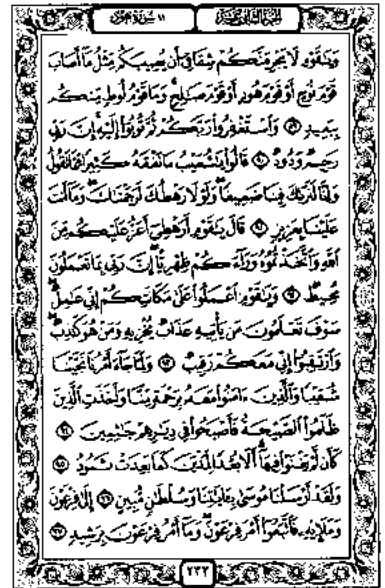 ١١ سورة هود
الجزء الثاني عشر
وَيَٰقَوْمِ لَا يَجْرِمَنَّكُمْ شِقَاقِىٓ أَن يُصِيبَكُم مِّثْلُ مَآ أَصَابَ
قَوْمَ نُوحٍ أَوْ قَوْمَ هُودٍ أَوْ قَوْمَ صَٰلِحٍ ۚ وَمَا قَوْمُ لُوطٍ مِّنكُم
بِبَعِيدٍ ٨٩ وَٱسْتَغْفِرُوا۟ رَبَّكُمْ ثُمَّ تُوبُوٓا۟ إِلَيْهِ ۚ إِنَّ رَبِّى
رَحِيمٌ وَدُودٌ ٩٠ قَالُوا۟ يَٰشُعَيْبُ مَا نَفْقَهُ كَثِيرًا مِّمَّا تَقُولُ
وَإِنَّا لَنَرَىٰكَ فِينَا ضَعِيفًا ۖ وَلَوْلَا رَهْطُكَ لَرَجَمْنَٰكَ ۖ وَمَآ أَنتَ
عَلَيْنَا بِعَزِيزٍ ٩١ قَالَ يَٰقَوْمِ أَرَهْطِىٓ أَعَزُّ عَلَيْكُم مِّنَ
ٱللَّهِ وَٱتَّخَذْتُمُوهُ وَرَآءَكُمْ ظِهْرِيًّا ۖ إِنَّ رَبِّى بِمَا تَعْمَلُونَ
مُحِيطٌ ٩٢ وَيَٰقَوْمِ ٱعْمَلُوا۟ عَلَىٰ مَكَانَتِكُمْ إِنِّى عَٰمِلٌ ۖ
سَوْفَ تَعْلَمُونَ مَن يَأْتِيهِ عَذَابٌ يُخْزِيهِ وَمَنْ هُوَ كَٰذِبٌ ۖ
وَٱرْتَقِبُوٓا۟ إِنِّى مَعَكُمْ رَقِيبٌ ٩٣ وَلَمَّا جَآءَ أَمْرُنَا نَجَّيْنَا
شُعَيْبًا وَٱلَّذِينَ ءَامَنُوا۟ مَعَهُۥ بِرَحْمَةٍ مِّنَّا وَأَخَذَتِ ٱلَّذِينَ
ظَلَمُوا۟ ٱلصَّيْحَةُ فَأَصْبَحُوا۟ فِى دِيَٰرِهِمْ جَٰثِمِينَ ٩٤
كَأَن لَّمْ يَغْنَوْا۟ فِيهَآ ۗ أَلَا بُعْدًا لِّمَدْيَنَ كَمَا بَعِدَتْ ثَمُودُ ٩٥
وَلَقَدْ أَرْسَلْنَا مُوسَىٰ بِـَٔايَٰتِنَا وَسُلْطَٰنٍ مُّبِينٍ ٩٦ إِلَىٰ فِرْعَوْنَ
وَمَلَإِي۟هِۦ فَٱتَّبَعُوٓا۟ أَمْرَ فِرْعَوْنَ ۖ وَمَآ أَمْرُ فِرْعَوْنَ بِرَشِيدٍ ٩٧
٢٣٢